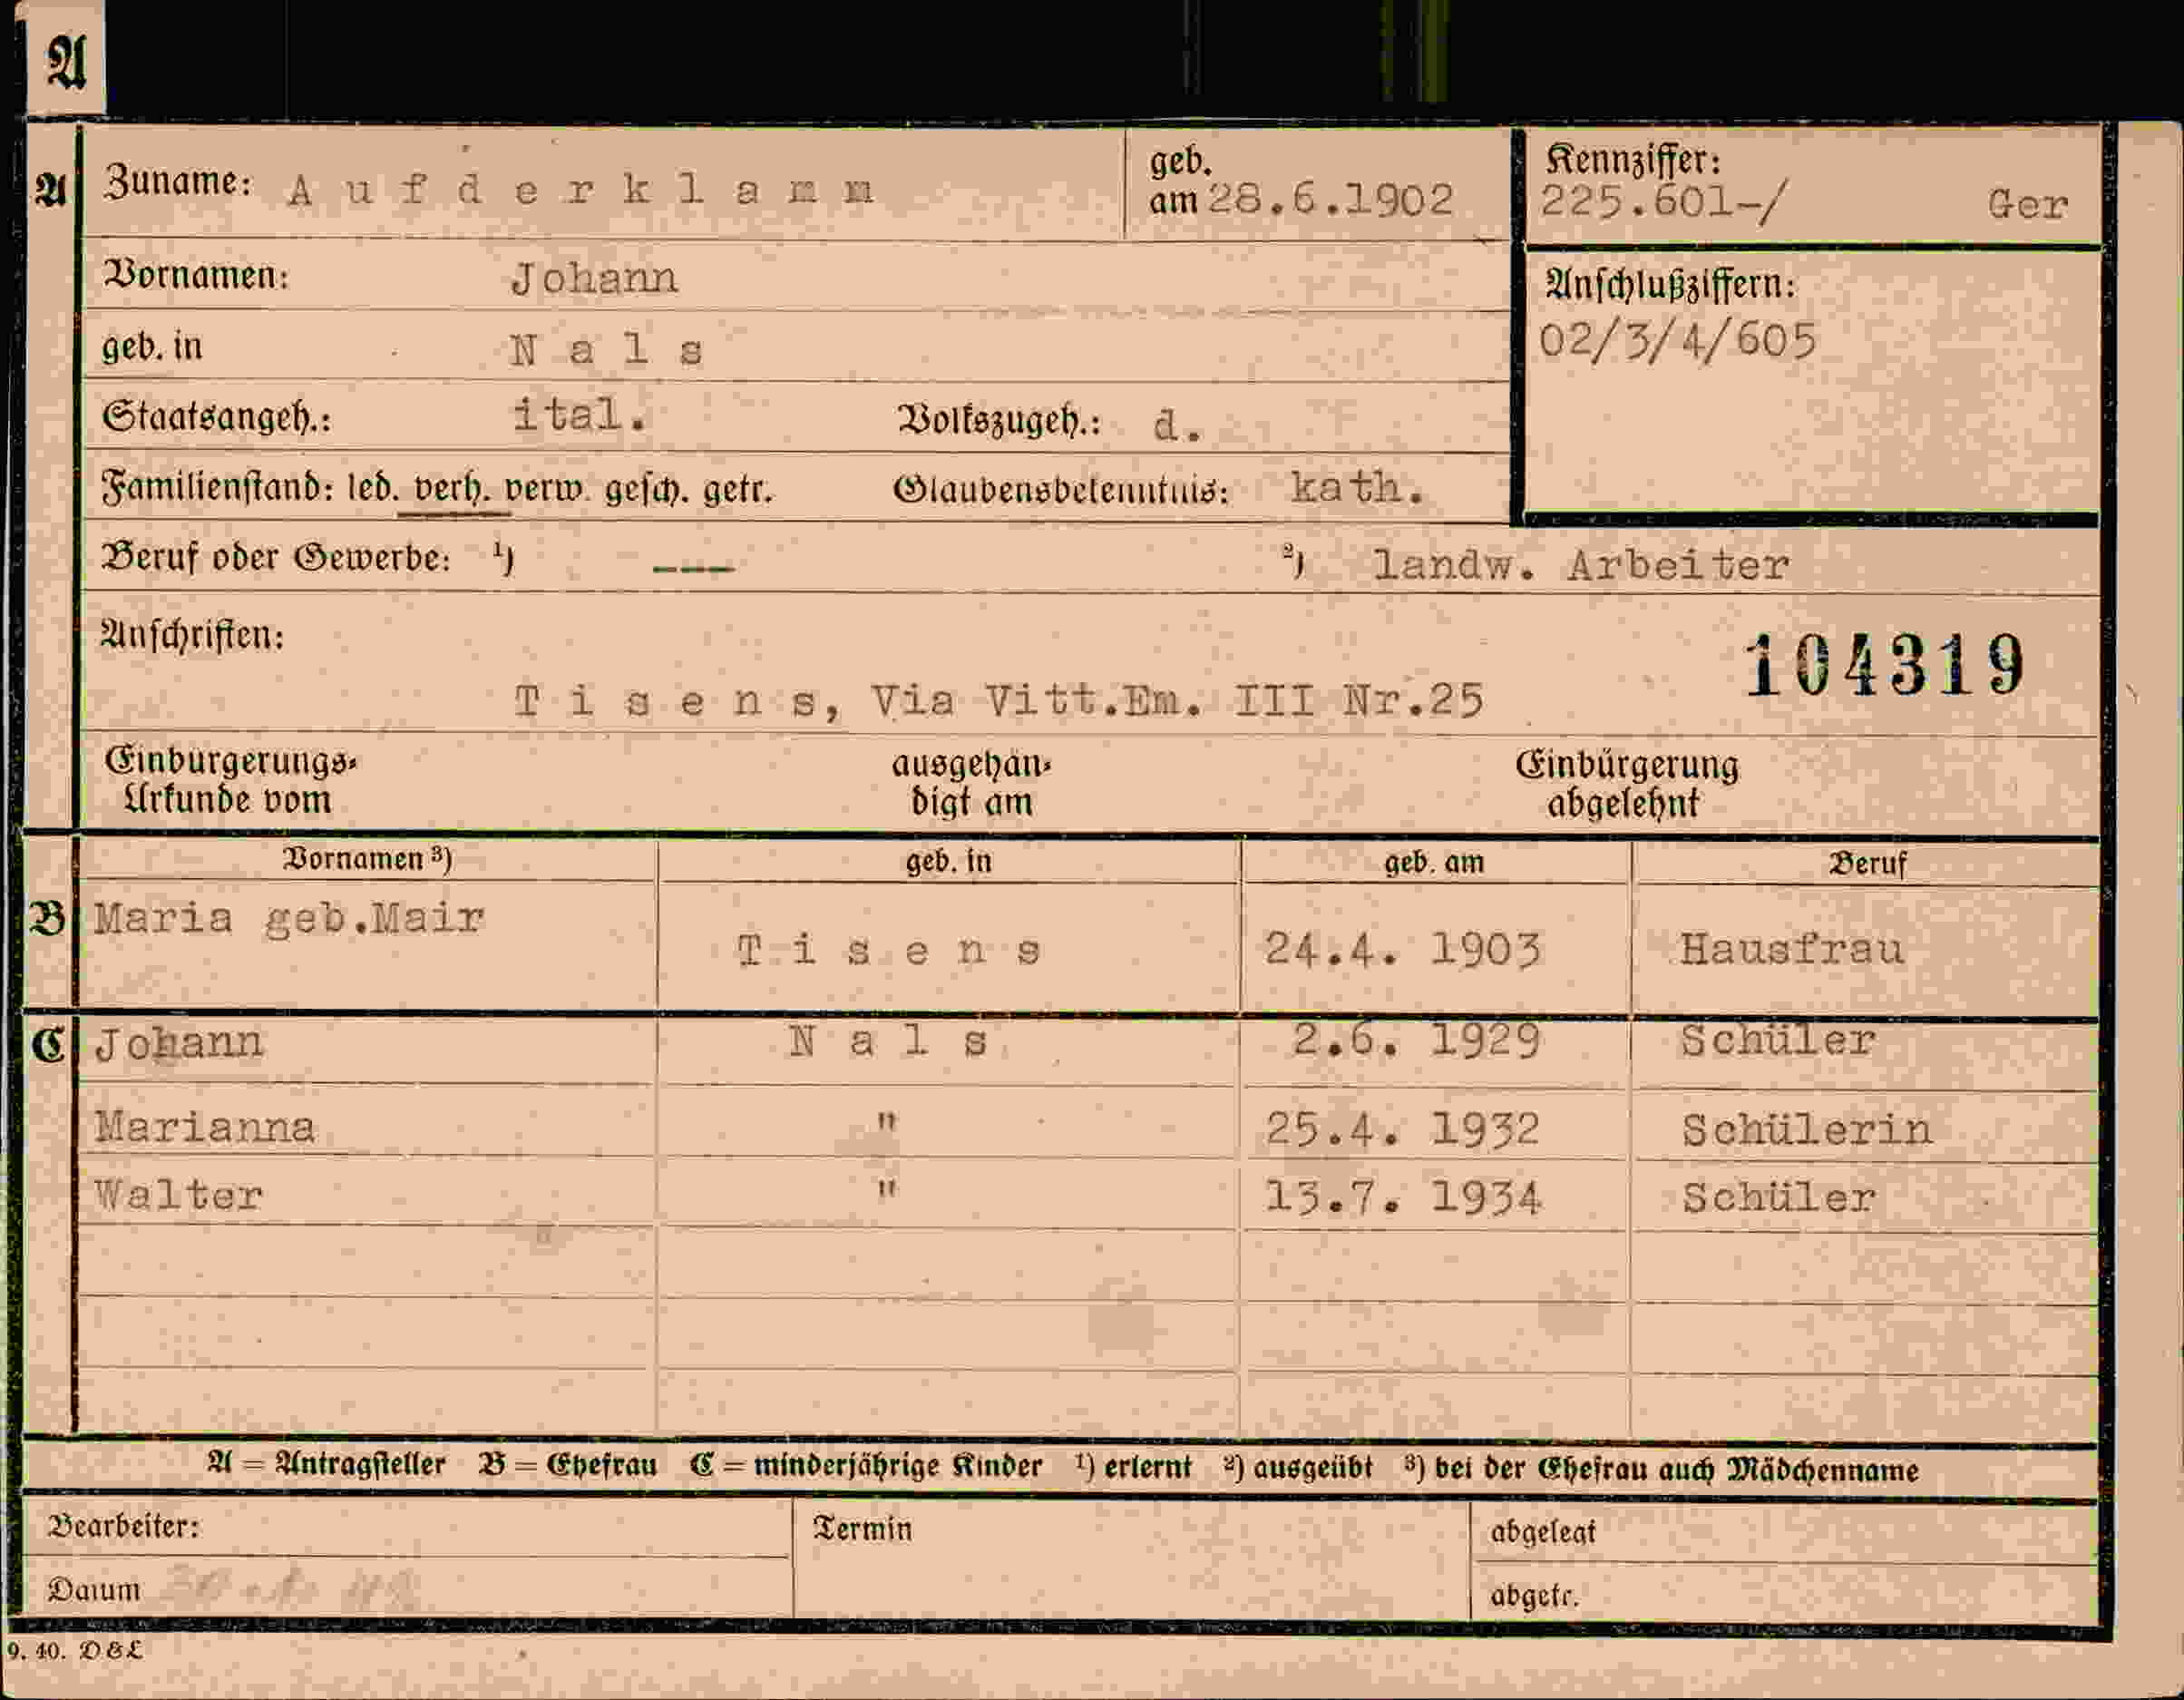 A
A Zuname: Aufderklamm geb. am 28.6.1902 Kennziffer: 225.601-/ Ger
Vornamen: Johann Anschlußziffern:
02/3/4/605
geb. in Nals
Staatsangeh.: ital. Volkszugeh.: d.
Familienstand: led. verh. verw. gesch. getr. Glaubensbekenntnis: kath.
Beruf oder Gewerbe: ¹) --- ²) landw. Arbeiter
Anschriften:
104319
Tisens, Via Vitt.Em. III Nr.25
Einbürgerungs-Urkunde vom ausgehändigt am Einbürgerung abgelehnt
Vornamen ³) geb. in geb. am Beruf
B Maria geb.Mair Tisens 24.4. 1903 Hausfrau
C Johann Nals 2.6. 1929 Schüler
Marianna " 25.4. 1932 Schülerin
Walter " 13.7. 1934 Schüler
A = Antragsteller B = Ehefrau C = minderjährige Kinder ¹) erlernt ²) ausgeübt ³) bei der Ehefrau auch Mädchenname
Bearbeiter: Termin abgelegt
Datum abgetr.
9. 40. D & L